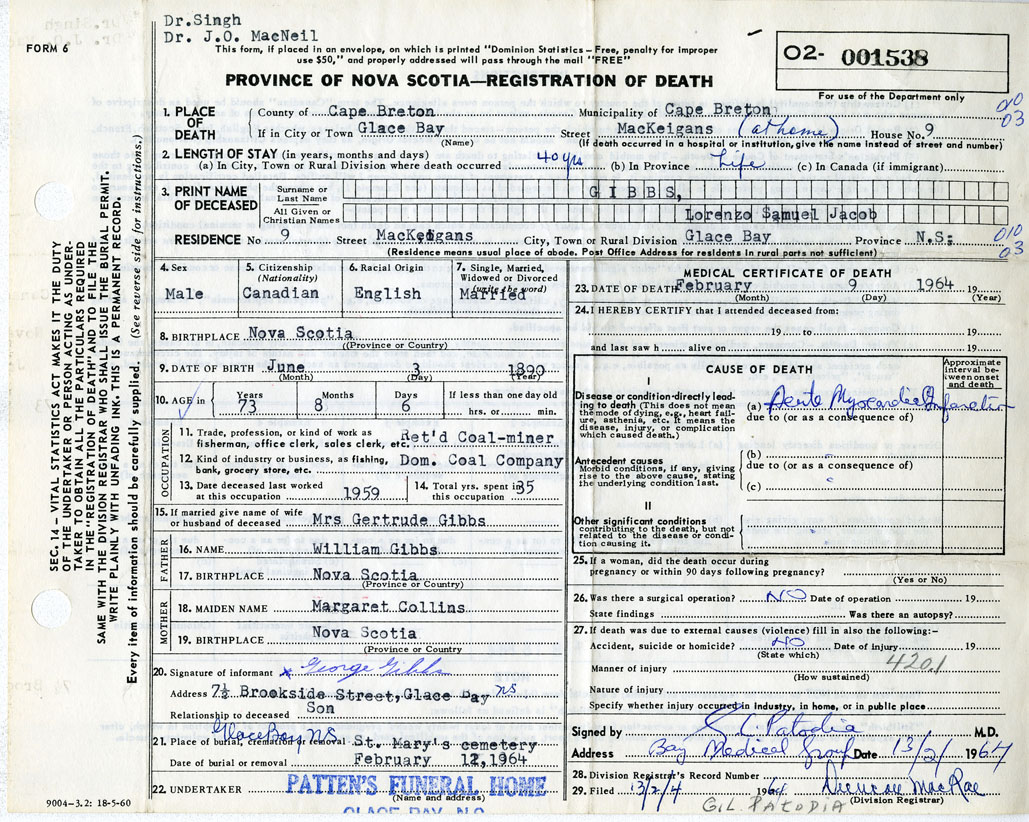 Dr.Singh
Dr. J.O. MacNeil
FORM 6
This form, if placed in an envelope, on which is printed "Dominion Statistics – Free, penalty for improper
use $50," and properly addressed will pass through the mail "FREE"
PROVINCE OF NOVA SCOTIA—REGISTRATION OF DEATH
02- 001538
For use of the Department only
SEC. 14 – VITAL STATISTICS ACT MAKES IT THE DUTY
OF THE UNDERTAKER OR PERSON ACTING AS UNDER-
TAKER TO OBTAIN ALL THE PARTICULARS REQUIRED
IN THE "REGISTRATION OF DEATH" AND TO FILE THE
SAME WITH THE DIVISION REGISTRAR WHO SHALL ISSUE THE BURIAL PERMIT.
WRITE PLAINLY WITH UNFADING INK. THIS IS A PERMANENT RECORD.
Every item of information should be carefully supplied. (See reverse side for instructions.)
1. PLACE OF DEATH
County of Cape Breton Municipality of Cape Breton
03
If in City or Town Glace Bay Street MacKeigans (at home) House No. 9
(Name) (If death occurred in a hospital or institution, give the name instead of street and number)
2. LENGTH OF STAY (in years, months and days)
(a) In City, Town or Rural Division where death occurred 40 yrs (b) In Province Life (c) In Canada (if immigrant)
3. PRINT NAME OF DECEASED
Surname or Last Name GIBBS,
All Given or Christian Names Lorenzo Samuel Jacob
RESIDENCE No 9 Street MacKeigans City, Town or Rural Division Glace Bay Province N.S.
010
03
(Residence means usual place of abode. Post Office Address for residents in rural parts not sufficient)
4. Sex Male
5. Citizenship (Nationality) Canadian
6. Racial Origin English
7. Single, Married, Widowed or Divorced (write the word) Married
8. BIRTHPLACE Nova Scotia
(Province or Country)
9. DATE OF BIRTH June 3 1890
(Month) (Day) (Year)
10. AGE in Years 73 Months 8 Days 6 If less than one day old hrs. or min.
OCCUPATION
11. Trade, profession, or kind of work as fisherman, office clerk, sales clerk, etc. Ret'd Coal-miner
12. Kind of industry or business, as fishing, bank, grocery store, etc. Dom. Coal Company
13. Date deceased last worked at this occupation 1959
14. Total yrs. spent in this occupation 35
15. If married give name of wife or husband of deceased Mrs Gertrude Gibbs
FATHER
16. NAME William Gibbs
17. BIRTHPLACE Nova Scotia
(Province or Country)
MOTHER
18. MAIDEN NAME Margaret Collins
19. BIRTHPLACE Nova Scotia
(Province or Country)
20. Signature of informant x George Gibbs
Address 7½ Brookside Street, Glace Bay NS
Relationship to deceased Son
Glace Bay NS
21. Place of burial, cremation or removal St. Mary's cemetery
Date of burial or removal February 12, 1964
22. UNDERTAKER PATTEN'S FUNERAL HOME
(Name and address)
GLACE BAY, N.S.
9004-3.2: 18-5-60
MEDICAL CERTIFICATE OF DEATH
23. DATE OF DEATH February 9 1964 19
(Month) (Day) (Year)
24. I HEREBY CERTIFY that I attended deceased from:
19 to 19
and last saw h alive on 19
CAUSE OF DEATH
Approximate interval between onset and death
I
Disease or condition directly leading to death (This does not mean the mode of dying, e.g., heart failure, asthenia, etc. It means the disease, injury, or complication which caused death.)
(a) Acute Myocardial Infarction
due to (or as a consequence of)
Antecedent causes
Morbid conditions, if any, giving rise to the above cause, stating the underlying condition last.
(b)
due to (or as a consequence of)
(c)
II
Other significant conditions contributing to the death, but not related to the disease or condition causing it.
25. If a woman, did the death occur during pregnancy or within 90 days following pregnancy?
(Yes or No)
26. Was there a surgical operation? NO Date of operation 19
State findings Was there an autopsy?
27. If death was due to external causes (violence) fill in also the following:–
Accident, suicide or homicide? NO Date of injury 19
(State which)
420.1
Manner of injury
(How sustained)
Nature of injury
Specify whether injury occurred in industry, in home, or in public place
Signed by G.L. Patodia M.D.
Address Bay Medical Group Date 13/2/ 1964
28. Division Registrar's Record Number
29. Filed 13/2/4 1964 Duncan MacRae
(Division Registrar)
G.L. PATODIA